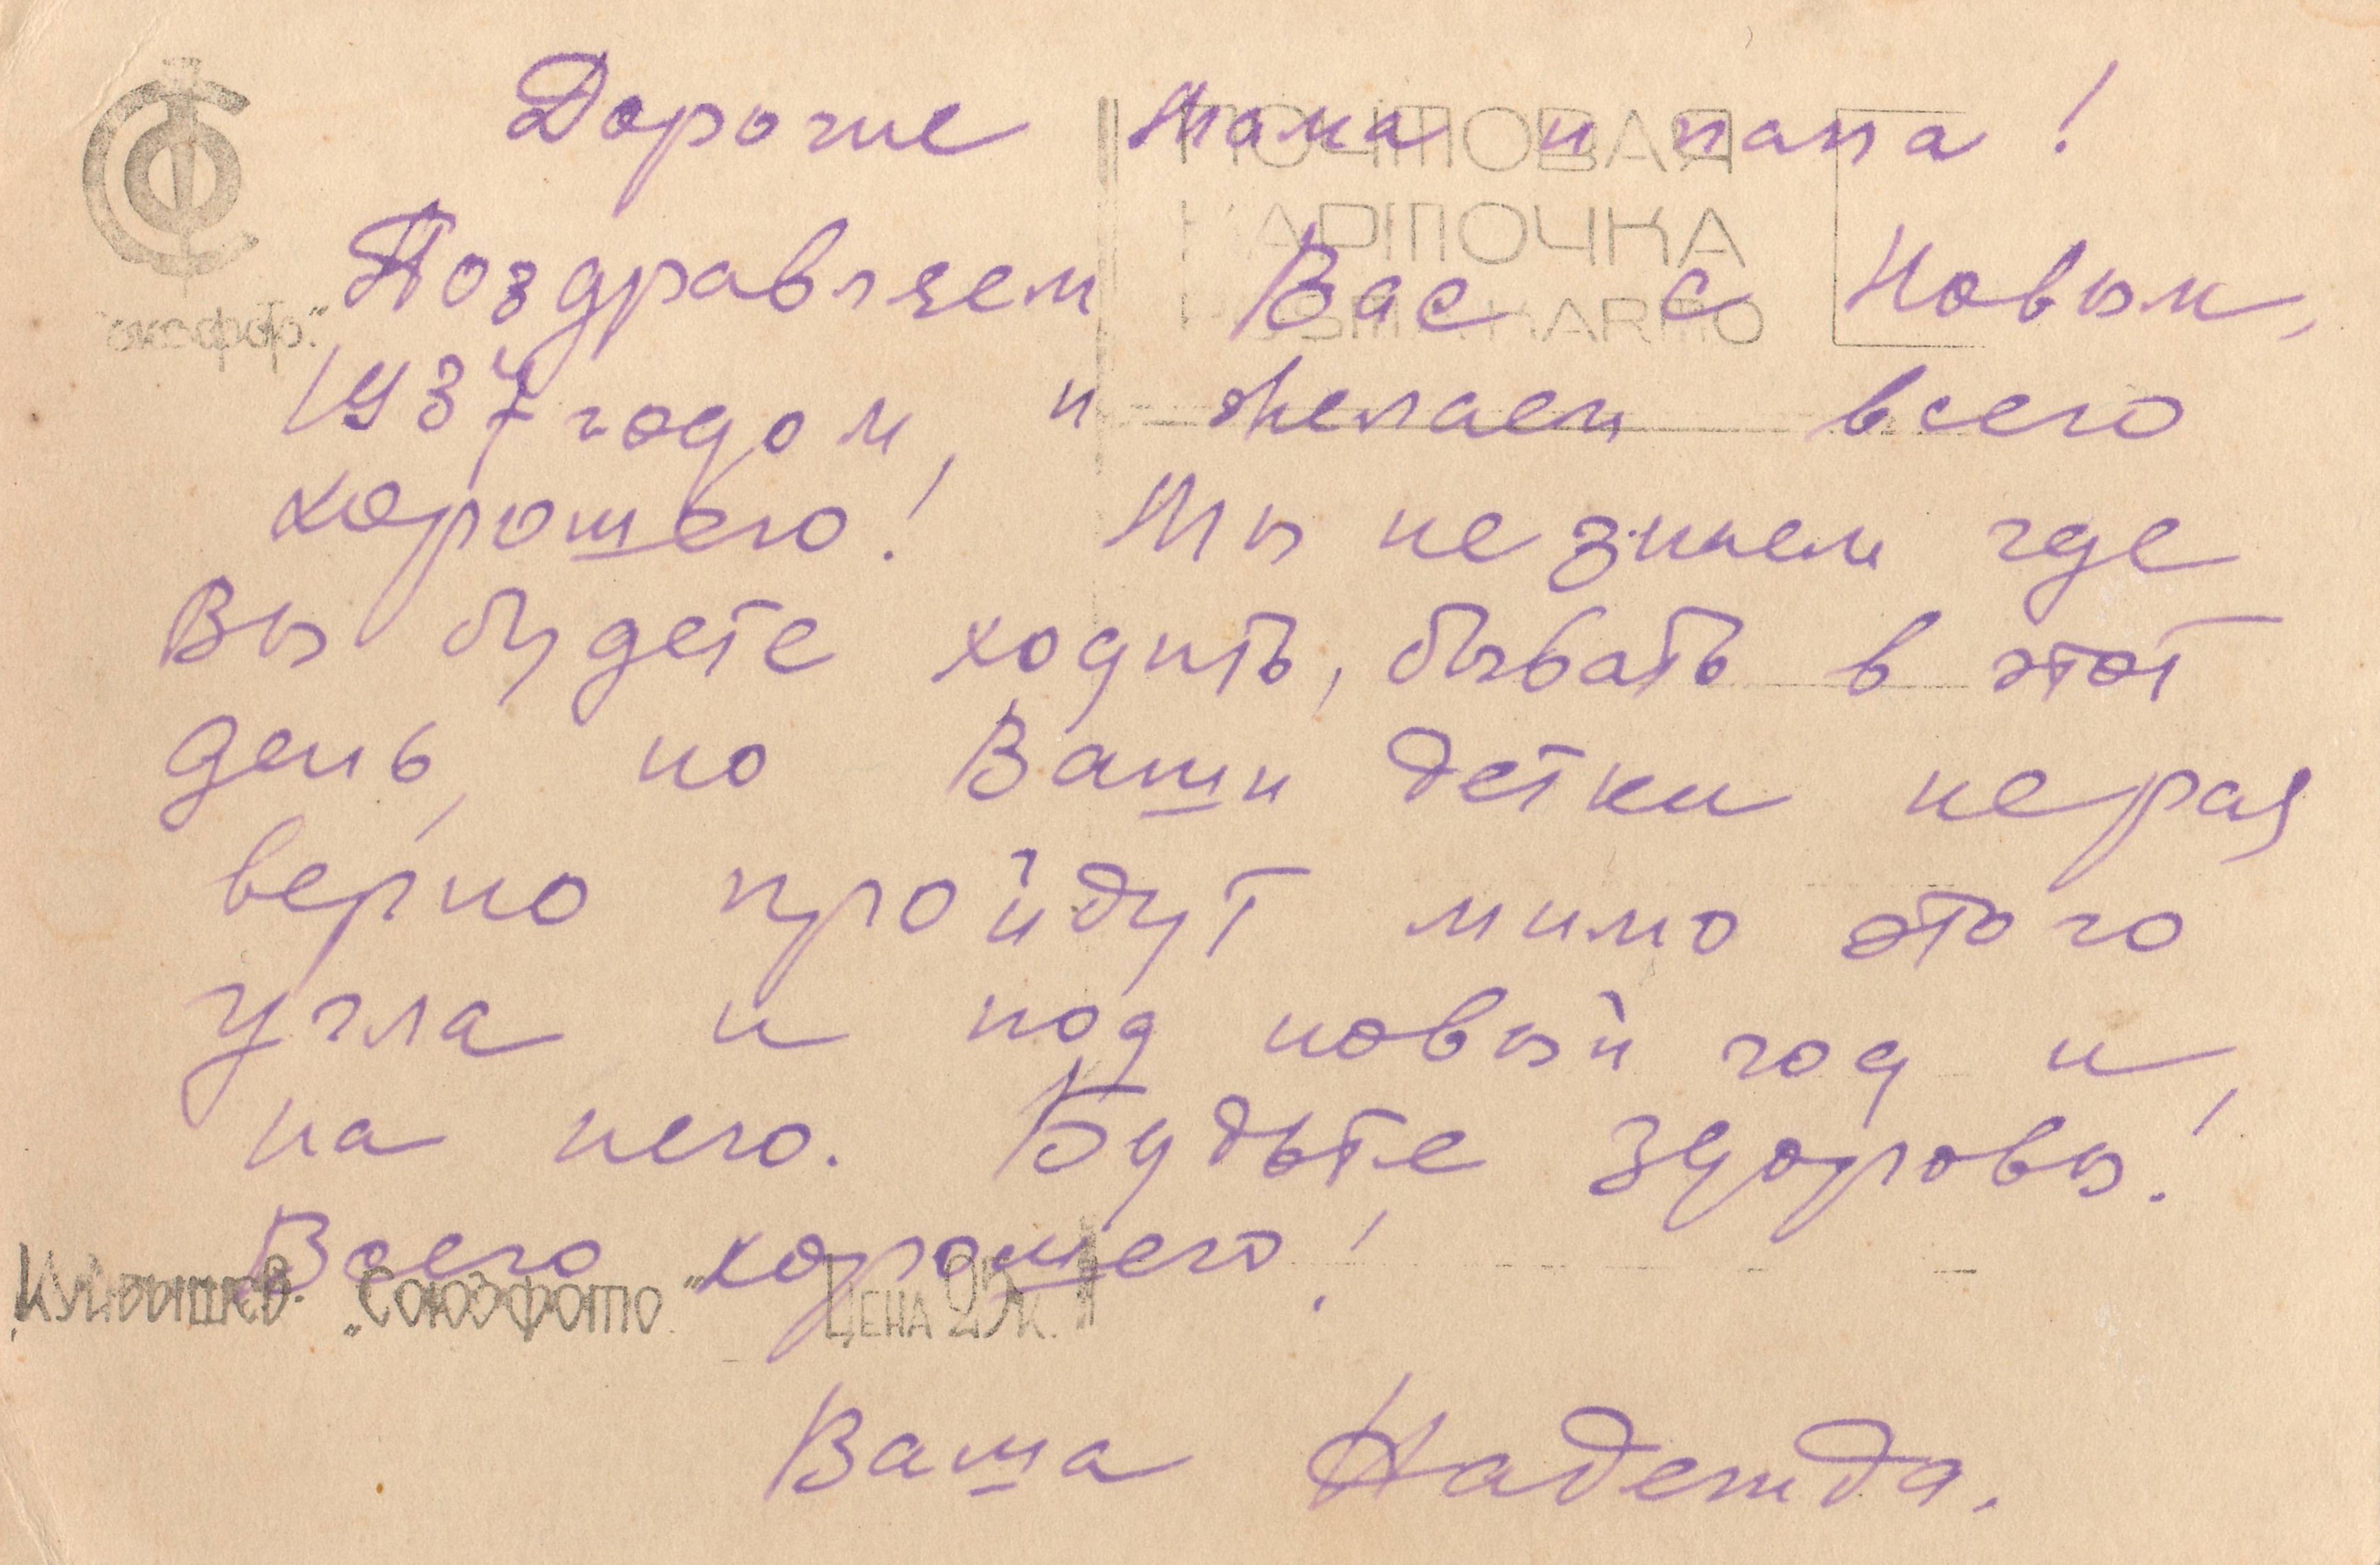 Дорогие мама и папа!
Поздравляем Вас с Новым,
1937 годом, и желаем всего
хорошего! Мы не знаем где
Вы будете ходить, бывать в этот
день, но Ваши детки не раз
верно пройдут мимо этого
угла и под новый год и,
на него. Будьте здоровы!
Всего хорошего!
Ваша Надежда.
ПОЧТОВАЯ
КАРТОЧКА
Куйбышев. „Союзфото“ Цена 25 к.